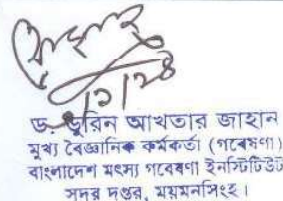 ড. ডুরিন আখতার জাহান
মুখ্য বৈজ্ঞানিক কর্মকর্তা (গবেষণা)
বাংলাদেশ মৎস্য গবেষণা ইনস্টিটিউট
সদর দপ্তর, ময়মনসিংহ।